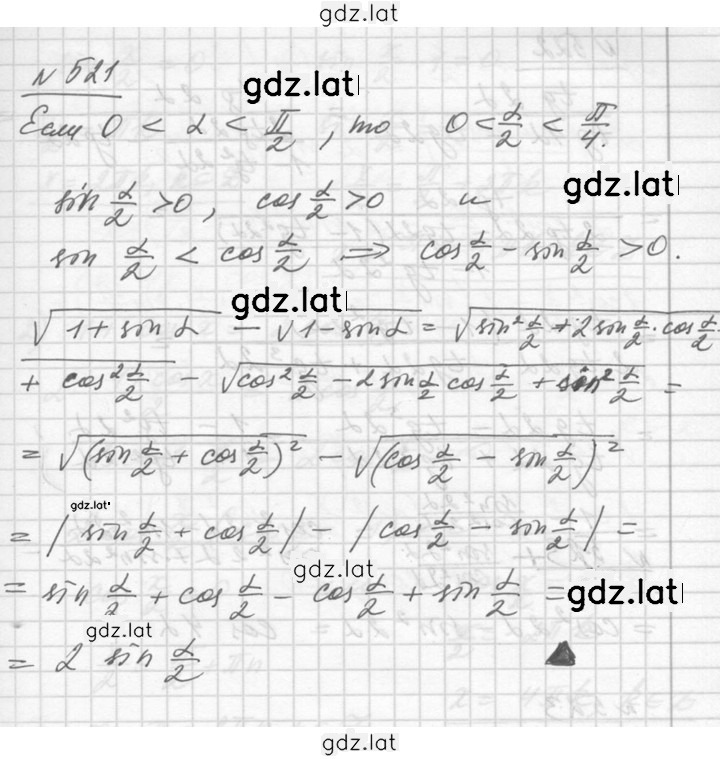 gdz.lat
N 521
gdz.lat
Если 0 < α < π/2, то 0 < α/2 < π/4.
gdz.lat
sin α/2 > 0, cos α/2 > 0 и
sin α/2 < cos α/2 ⟹ cos α/2 − sin α/2 > 0.
gdz.lat
√(1 + sin α) − √(1 − sin α) = √(sin² α/2 + 2 sin α/2 · cos α/2
+ cos² α/2) − √(cos² α/2 − 2 sin α/2 cos α/2 + sin² α/2) =
= √((sin α/2 + cos α/2)²) − √((cos α/2 − sin α/2)²)
gdz.lat
= |sin α/2 + cos α/2| − |cos α/2 − sin α/2| =
gdz.lat
= sin α/2 + cos α/2 − cos α/2 + sin α/2 =
gdz.lat
gdz.lat
= 2 sin α/2 ▲
gdz.lat